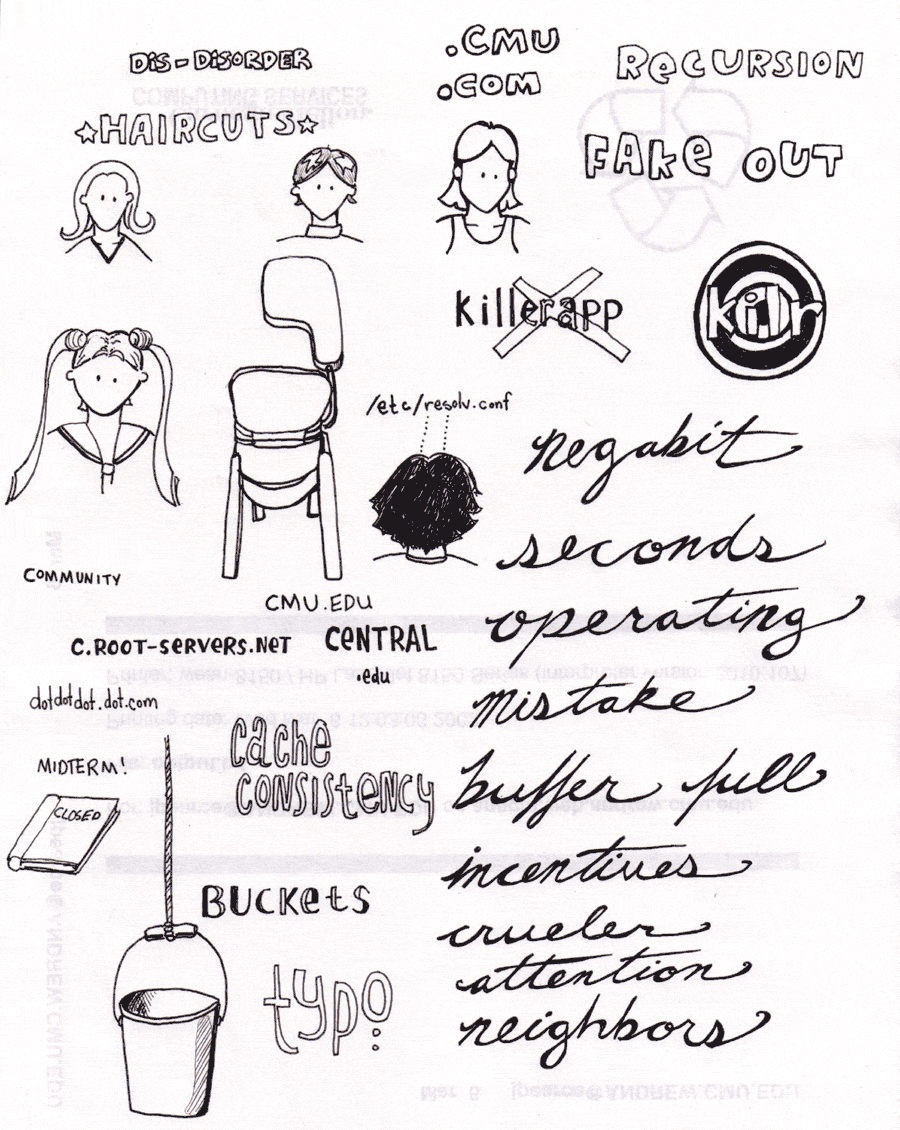 DIS-DISORDER
.CMU
.COM
RECURSION
☆HAIRCUTS☆
FAKE OUT
killerapp
killr
/etc/resolv.conf
negabit
seconds
COMMUNITY
CMU.EDU
operating
C.ROOT-SERVERS.NET
CENTRAL
.edu
dotdotdot.dot.com
mistake
cache
consistency
MIDTERM!
buffer full
CLOSED
incentives
BUCKETS
crueler
attention
typo
neighbors
COMPUTING SERVICES
Mar 6 jpearce@ANDREW.CMU.EDU